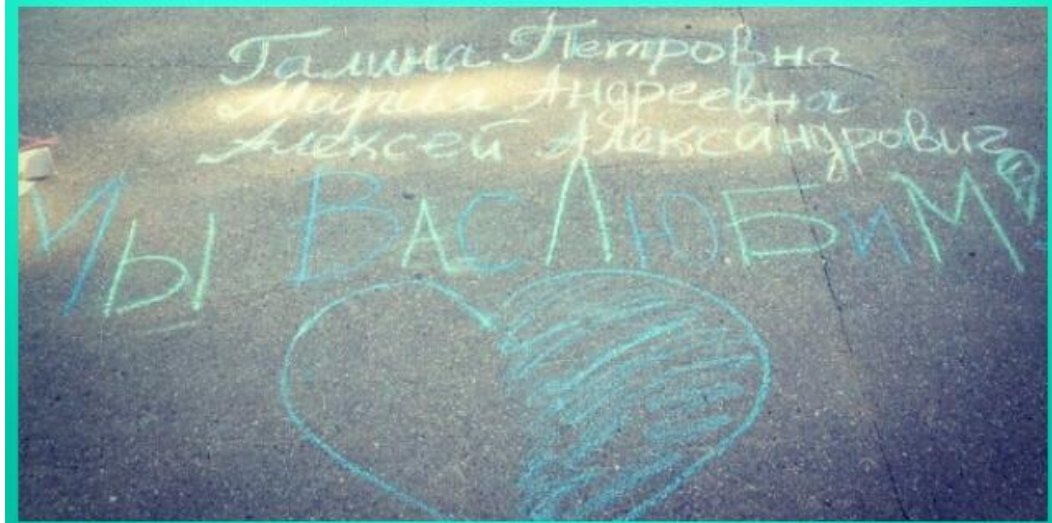 Галина Петровна
Мария Андреевна
Алексей Александрович
МЫ ВАС ЛЮБИМ!